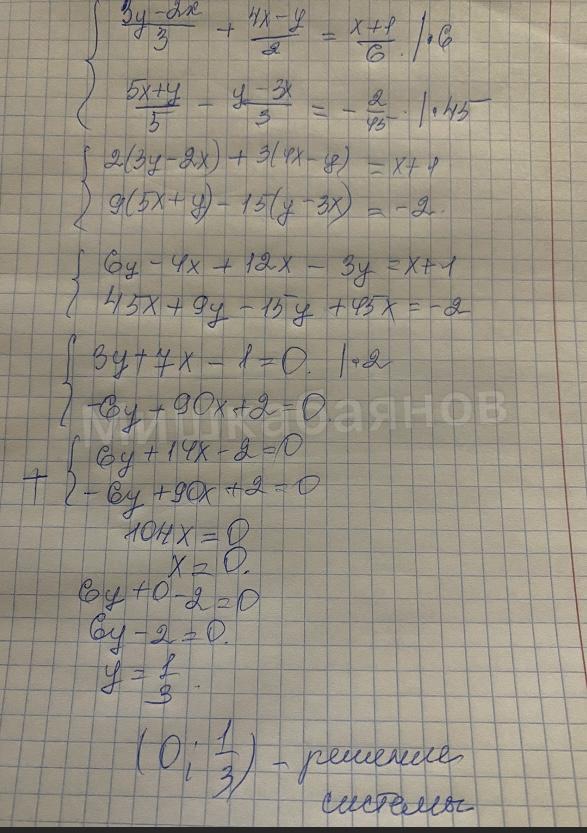 (3y-2x)/3 + (4x-y)/2 = (x+1)/6. |·6
(5x+y)/5 - (y-3x)/3 = -2/45. |·45
2(3y-2x) + 3(4x-y) = x+1
9(5x+y) - 15(y-3x) = -2.
6y - 4x + 12x - 3y = x+1
45x + 9y - 15y + 45x = -2
3y + 7x - 1 = 0. |·2
-6y + 90x + 2 = 0.
Мишкабаянов
6y + 14x - 2 = 0
+
-6y + 90x + 2 = 0
104x = 0
x = 0.
6y + 0 - 2 = 0
6y - 2 = 0.
y = 1/3.
(0; 1/3) - решение
системы